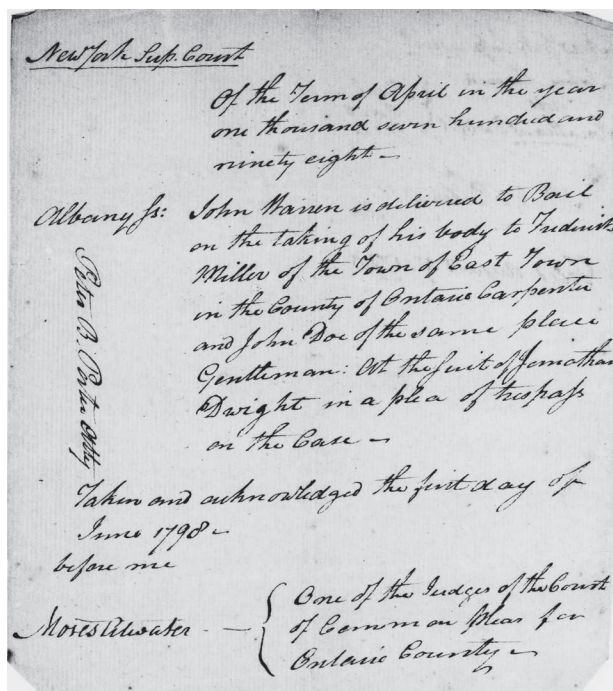 New York Sup. Court
Of the Term of April in the year
one thousand seven hundred and
ninety eight -
Albany ss: John Warren is delivered to Bail
on the taking of his body to Frederick
Miller of the Town of East Town
in the County of Ontario Carpenter
and John Doe of the same place
Gentleman: At the suit of Jonathan
Dwight in a plea of trespass
on the Case -
Peter B. Porter Atty
Taken and acknowledged the first day of
June 1798 -
before me
Moses Atwater - { One of the Judges of the Court
of Common Pleas for
Ontario County -